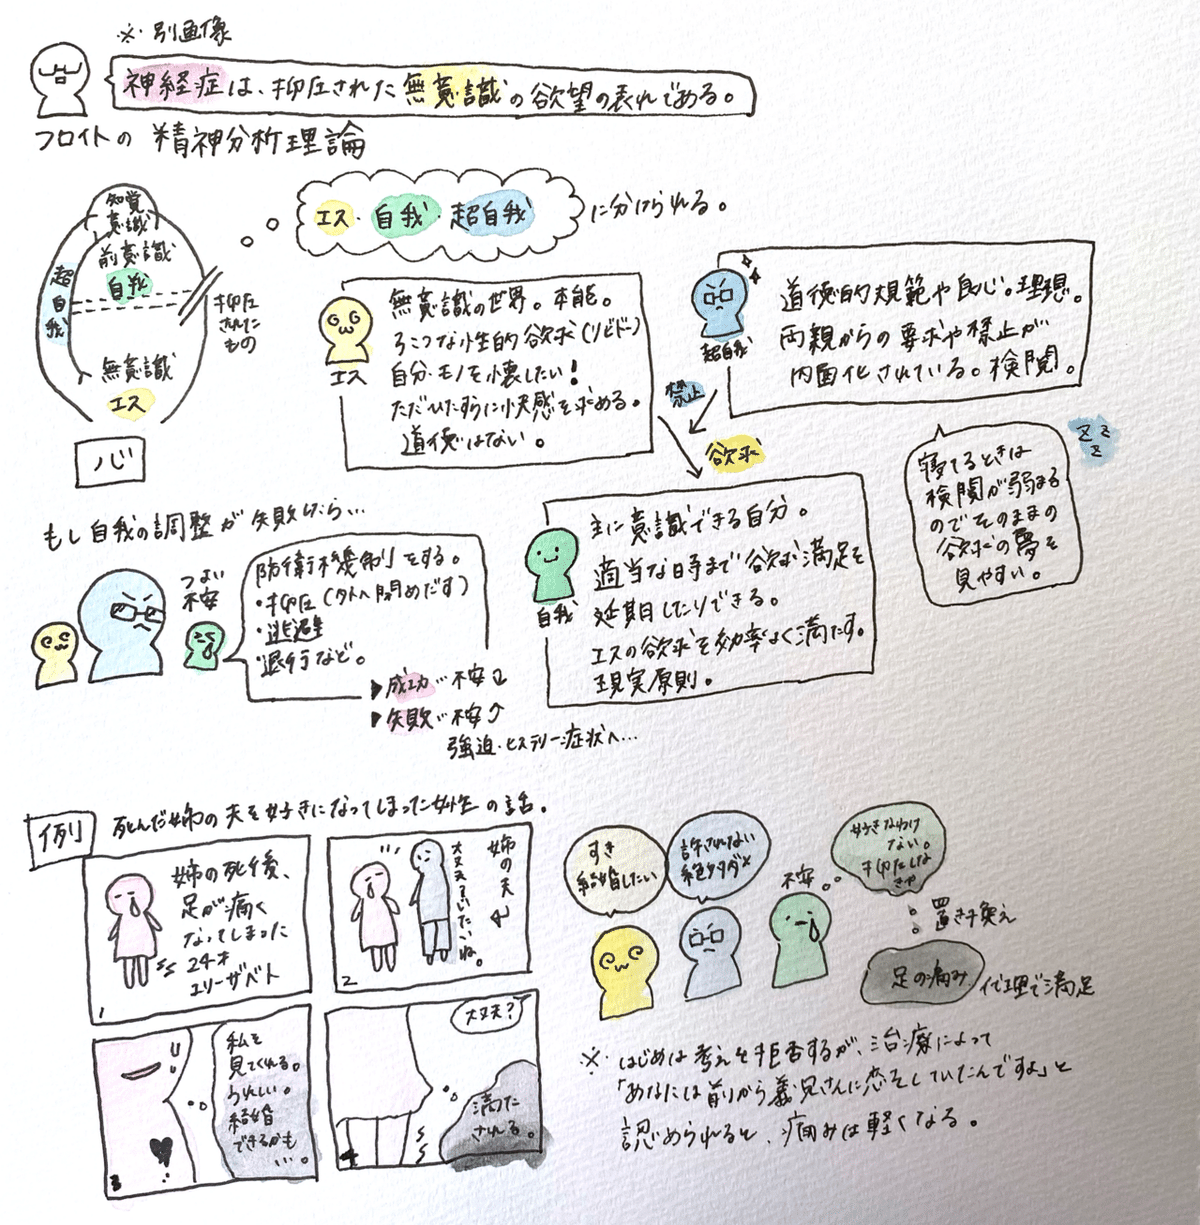 ※別画像
神経症は、抑圧された無意識の欲望の表れである。
フロイトの 精神分析理論
知覚
意識
前意識
自我
超自我
無意識
エス
抑圧
された
もの
心
エス・自我・超自我
に分けられる。
エス
無意識の世界。本能。
性的欲求(リビドー)
自分・モノを壊したい!
ただひたすらに快感を求める。
道徳はない。
超自我
道徳的規範や良心。理想。
両親からの要求や禁止が
内面化されている。検閲。
禁止
欲求
z z
z
寝てるときは
検閲が弱まる
のでそのままの
欲求の夢を
見やすい。
自我
主に意識できる自分。
適当な時まで欲求満足を
延期したりできる。
エスの欲求を効率よく満たす。
現実原則。
もし自我の調整が失敗したら…
つよい
不安
防衛機制をする。
・抑圧(外へ閉めだす)
・逃避
・退行など。
▶成功…不安↓
▶失敗…不安↑
強迫・ヒステリー症状へ…
例
死んだ姉の夫を好きになってしまった女性の話。
姉の死後、
足が痛く
なってしまった
24才
エリーザベト
1
姉の夫
大丈夫?いたいね。
2
私を
見てくれる。
うれしい。
結婚
できるかも
…。
3
大丈夫?
満た
される。
4
すき
結婚したい
許されない
絶対ダメ
不安
好きなわけ
ない。
抑圧しな
きゃ
置き換え
足の痛み
代理で満足
※はじめは考えを拒否するが、治療によって
「あなたは前から義兄さんに恋をしていたんですよ」と
認められると、痛みは軽くなる。